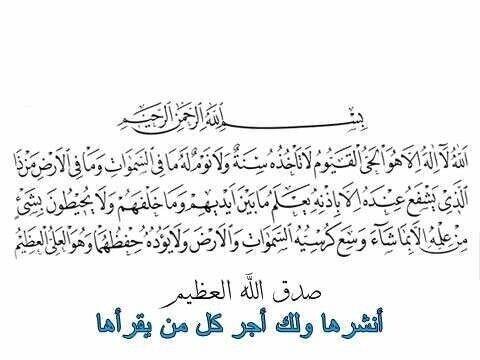 بِسْمِ اللَّهِ الرَّحْمَنِ الرَّحِيمِ
اللَّهُ لَا إِلَهَ إِلَّا هُوَ الْحَيُّ الْقَيُّومُ لَا تَأْخُذُهُ سِنَةٌ وَلَا نَوْمٌ لَهُ مَا فِي السَّمَوَاتِ وَمَا فِي الْأَرْضِ مَنْ ذَا
الَّذِي يَشْفَعُ عِنْدَهُ إِلَّا بِإِذْنِهِ يَعْلَمُ مَا بَيْنَ أَيْدِيهِمْ وَمَا خَلْفَهُمْ وَلَا يُحِيطُونَ بِشَيْءٍ
مِنْ عِلْمِهِ إِلَّا بِمَا شَاءَ وَسِعَ كُرْسِيُّهُ السَّمَوَاتِ وَالْأَرْضَ وَلَا يَئُودُهُ حِفْظُهُمَا وَهُوَ الْعَلِيُّ الْعَظِيمُ
صدق الله العظيم
أنشرها ولك أجر كل من يقرأها